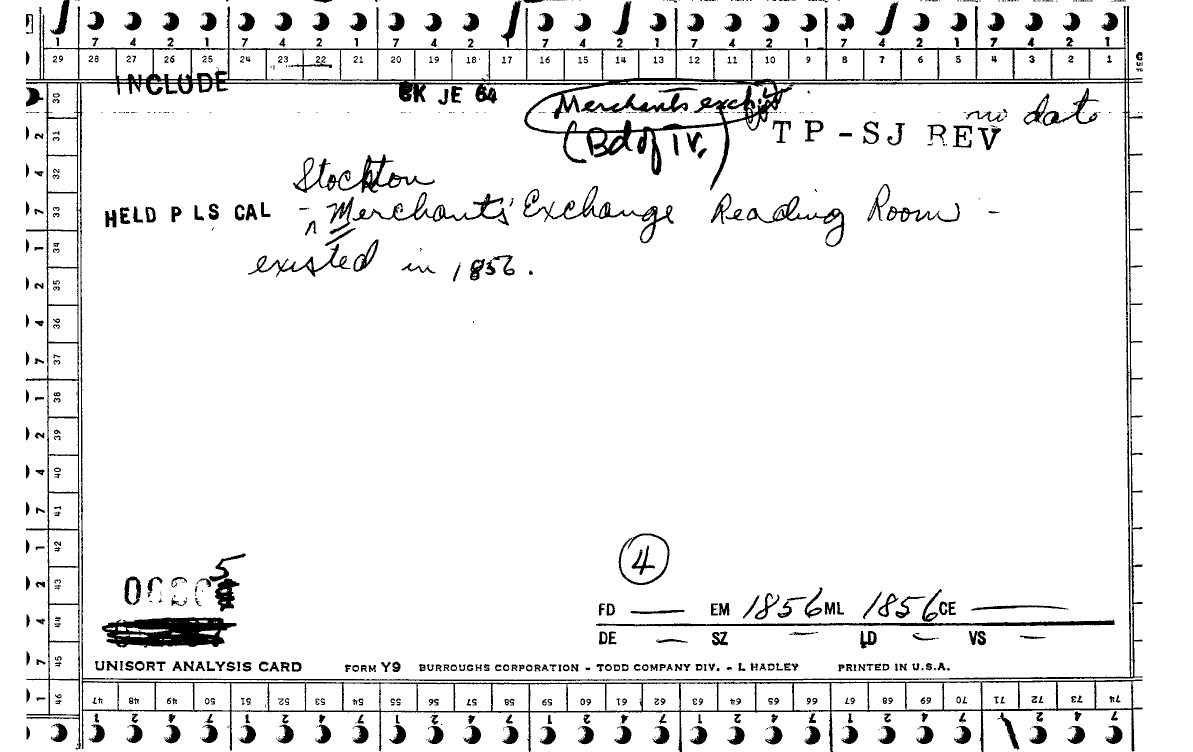 7 4 2 1 7 4 2 1 7 4 2 1 7 4 2 1 7 4 2 1 7 4 2 1 7 4 2 1
29 28 27 26 25 24 23 22 21 20 19 18 17 16 15 14 13 12 11 10 9 8 7 6 5 4 3 2 1
INCLUDE
BK JE 64
Merchants exch
no date
(Bd of Tr.)
TP-SJ REV
Stockton
HELD P LS CAL - Merchants' Exchange Reading Room -
existed in 1856.
30
2 31
4 32
7 33
1 34
2 35
4 36
7 37
1 38
2 39
4 40
7 41
1 42
2 43
4 44
7 45
1 46
4
5
FD — EM 1856 ML 1856 CE —
DE — SZ — LD — VS —
UNISORT ANALYSIS CARD FORM Y9 BURROUGHS CORPORATION - TODD COMPANY DIV. - L HADLEY PRINTED IN U.S.A.
47 48 49 50 51 52 53 54 55 56 57 58 59 60 61 62 63 64 65 66 67 68 69 70 71 72 73 74